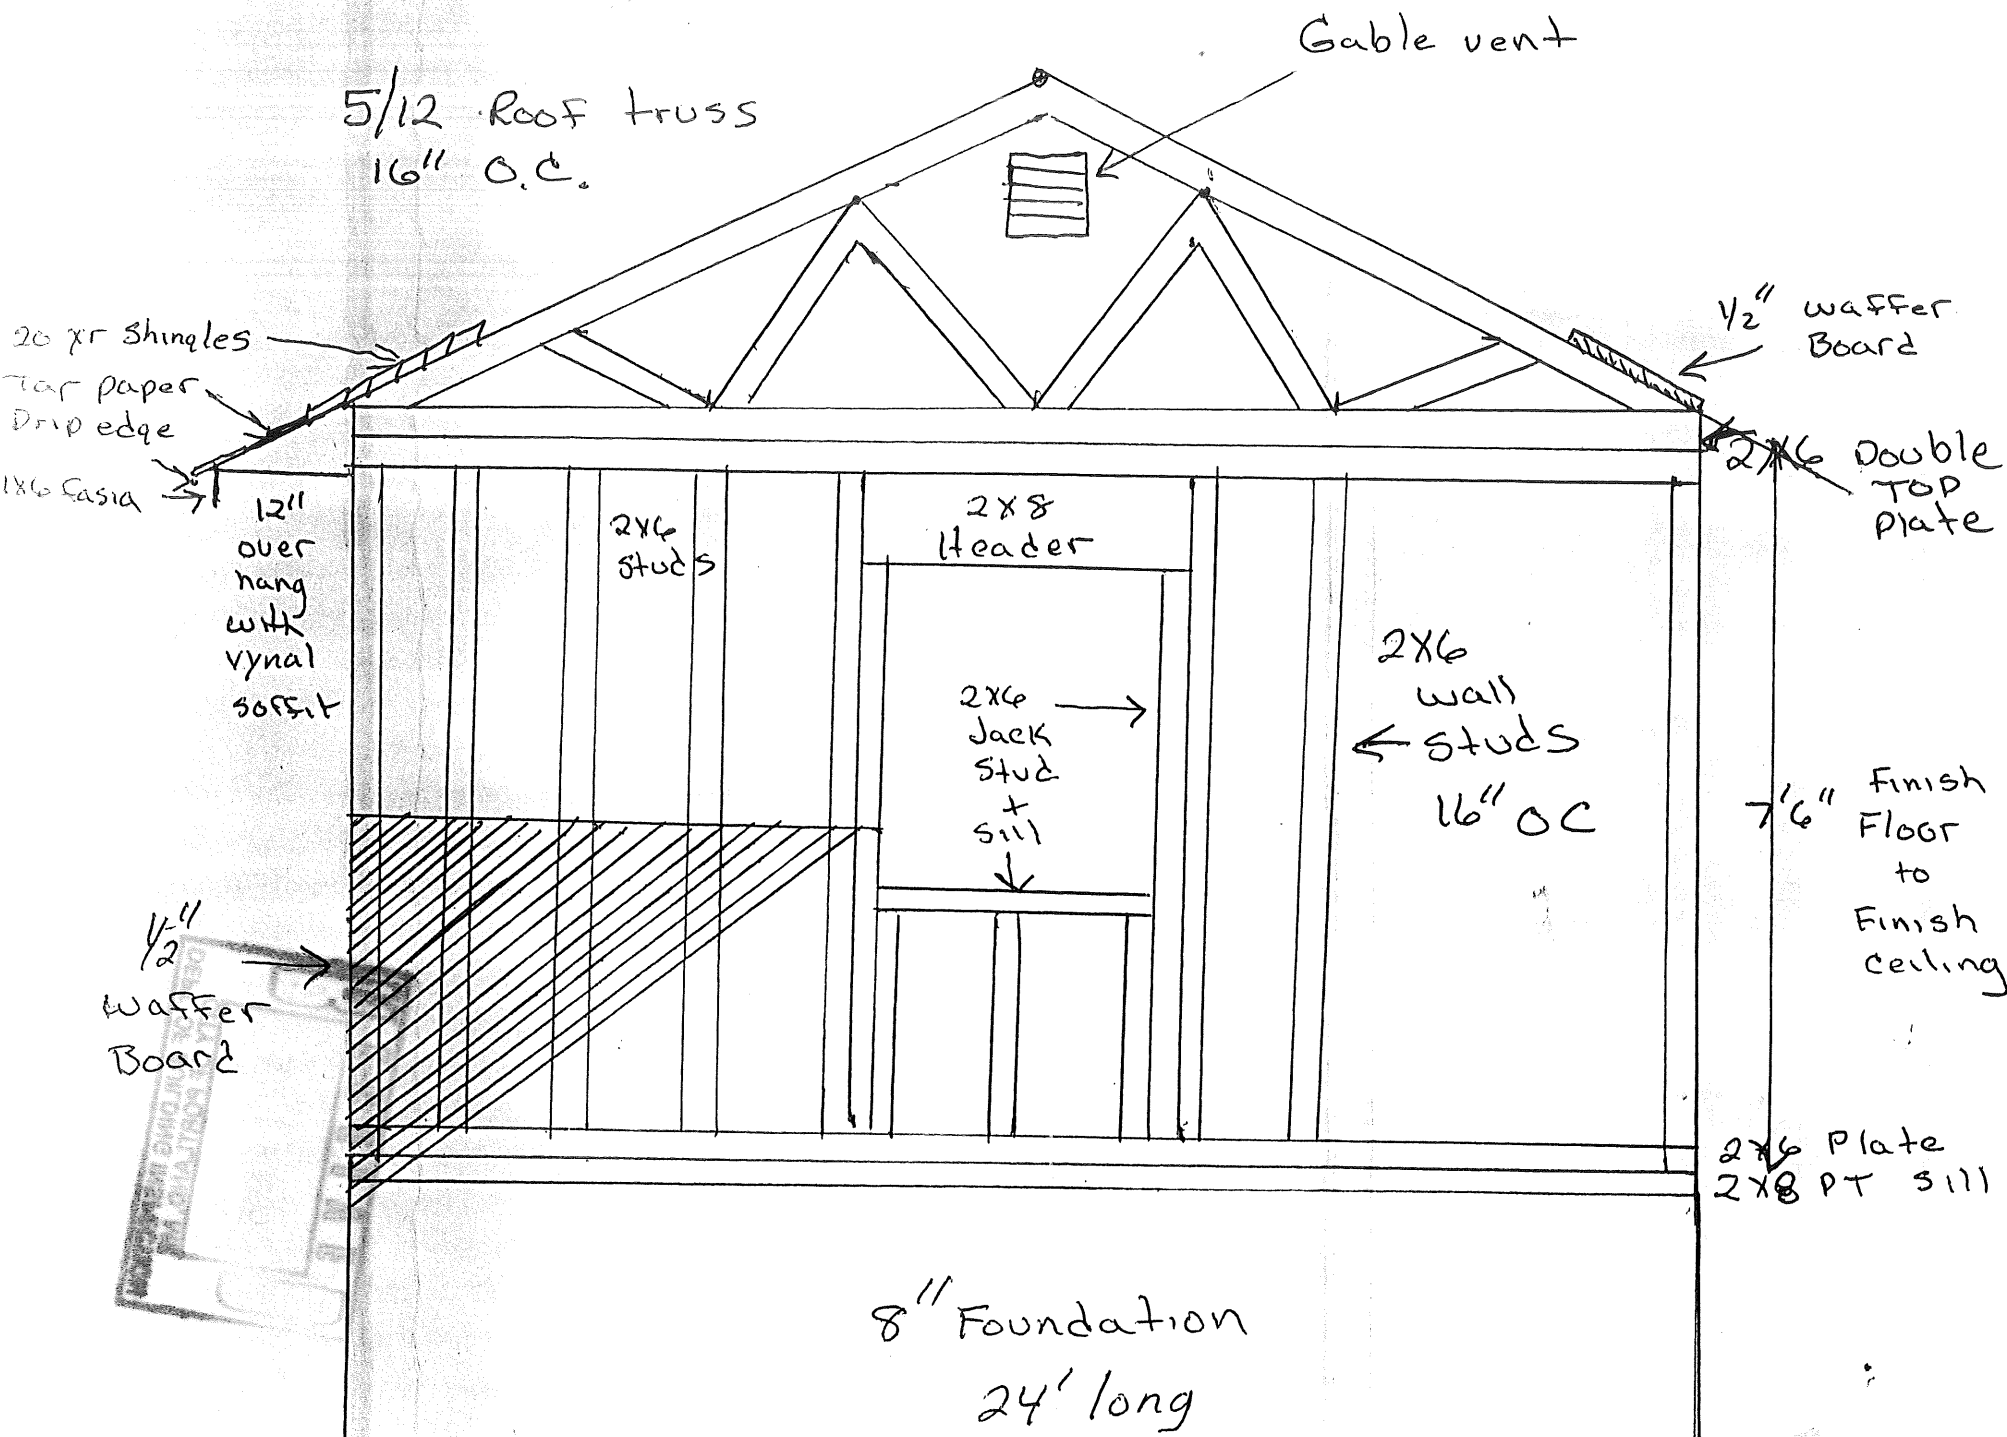 Gable vent
5/12 Roof truss
16" O.C.
20 yr Shingles
Tar paper
Drip edge
1x6 fasia
12"
over
hang
with
vynal
soffit
1/2" waffer
Board
2x6 Double
TOP
plate
2x6
studs
2x8
Header
2x6
Jack
Stud
+
Sill
2x6
wall
studs
16" OC
7'6" Finish
Floor
to
Finish
ceiling
1/2"
waffer
Board
2x6 Plate
2x8 PT sill
8" Foundation
24' long